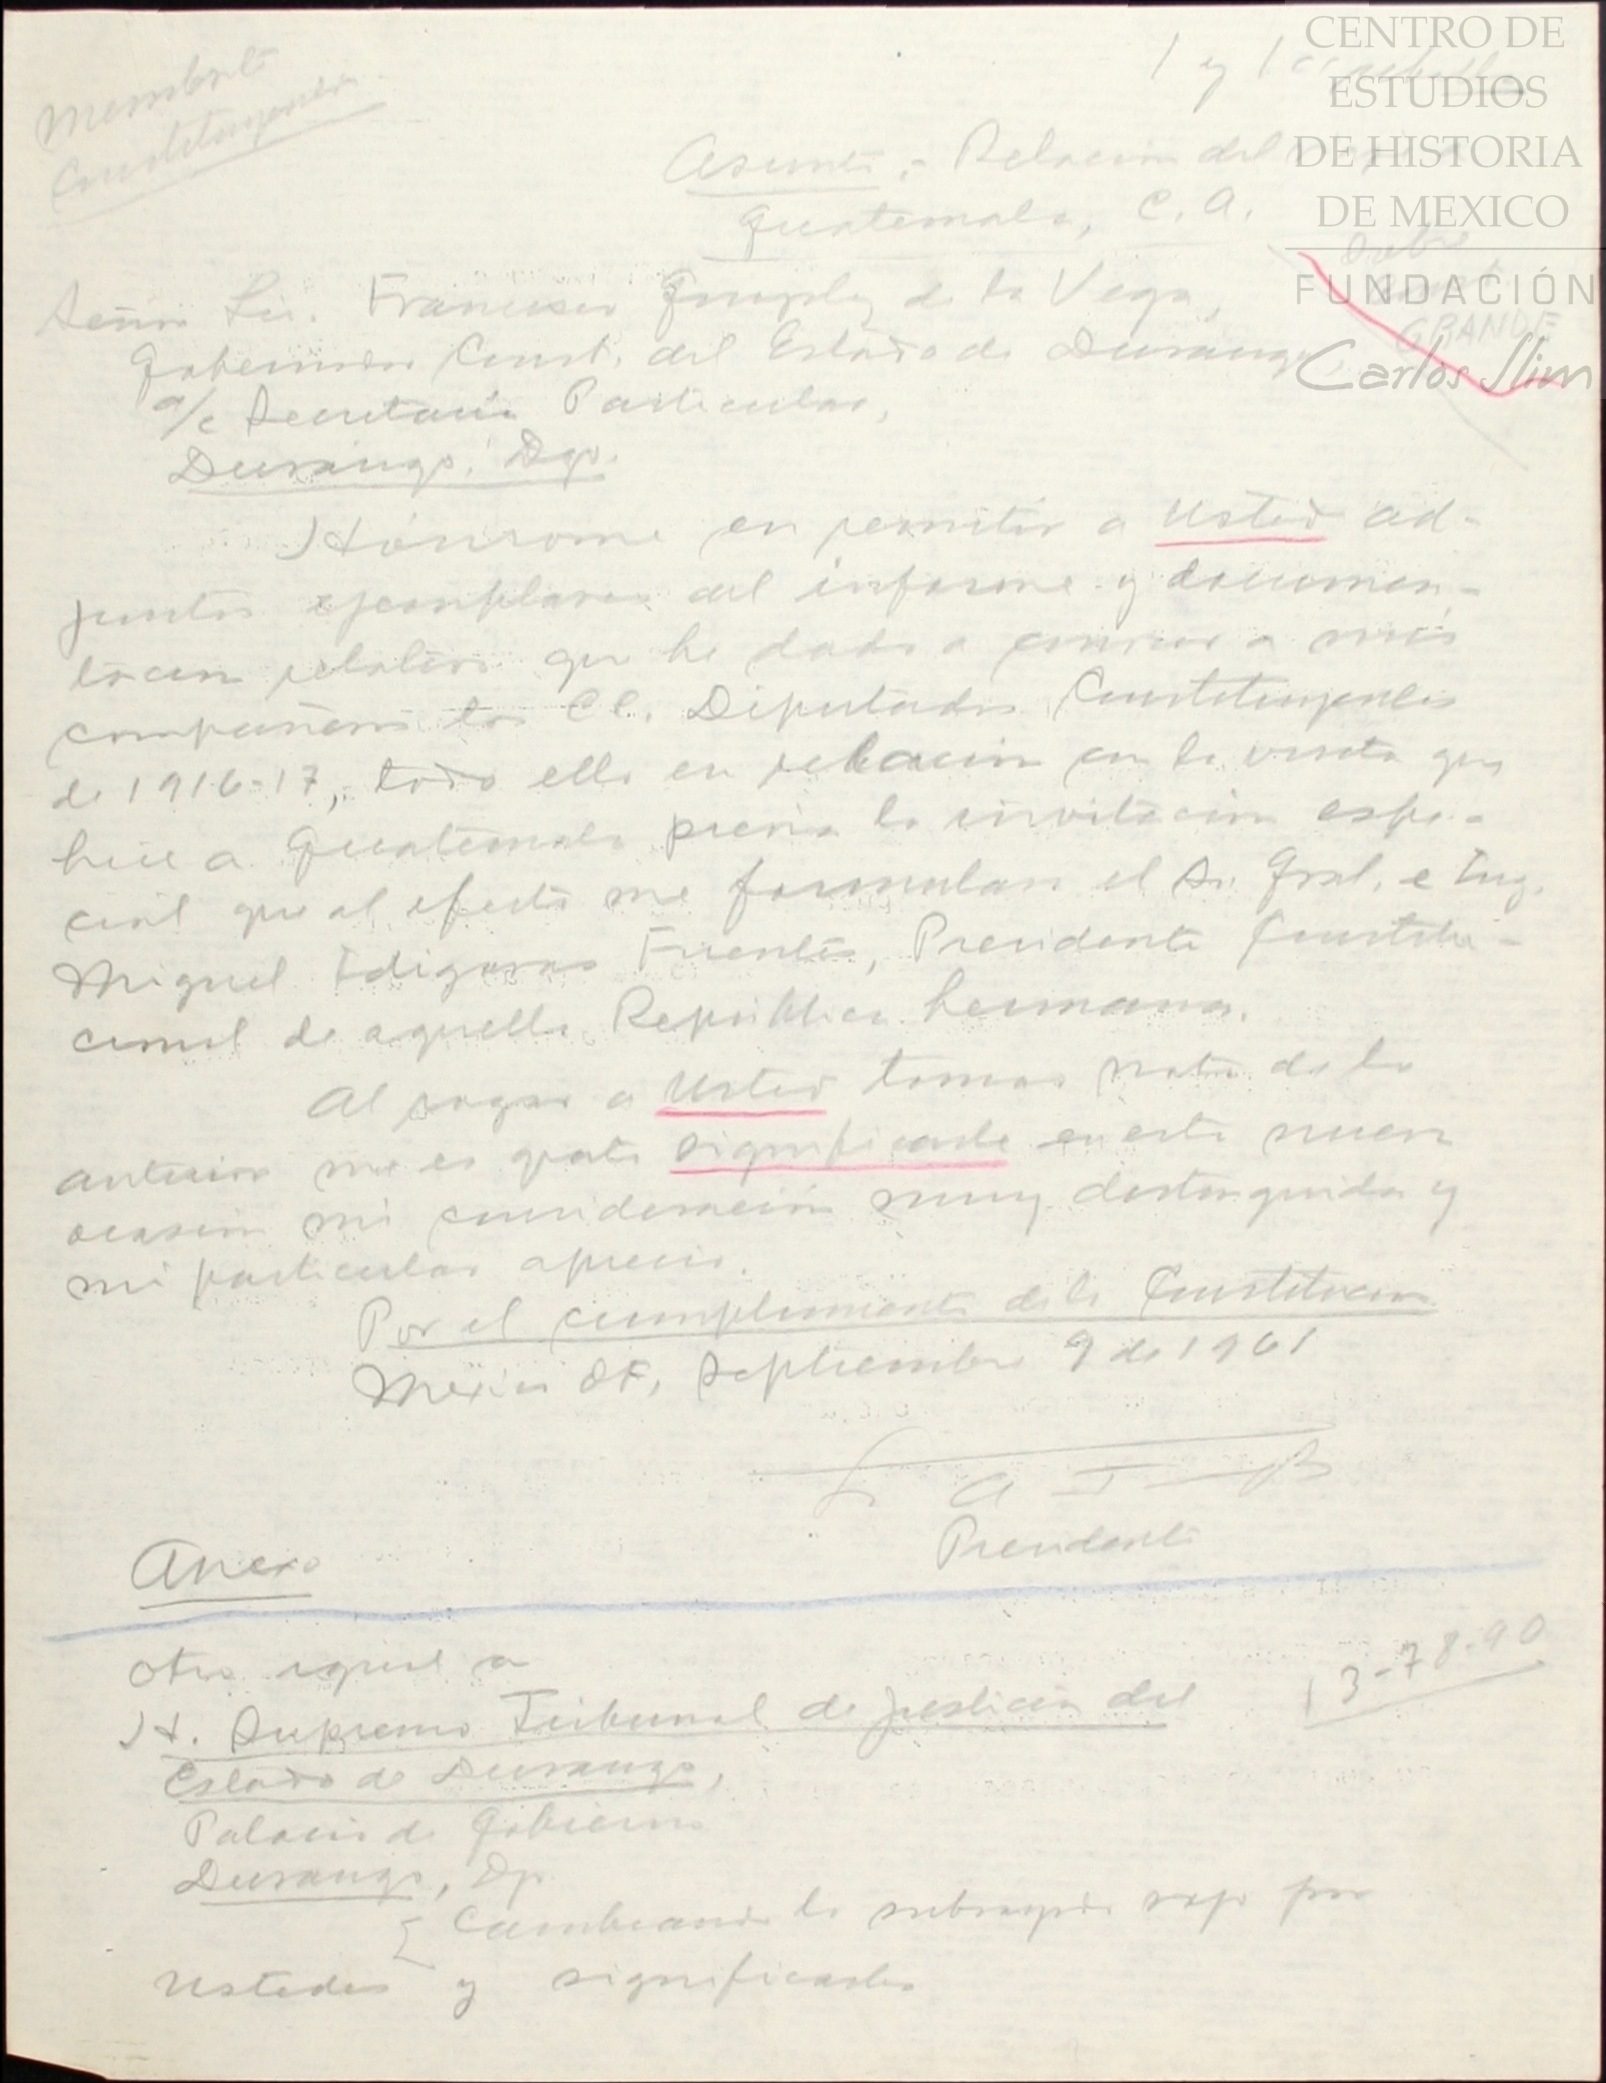 CENTRO DE
ESTUDIOS
DE HISTORIA
DE MEXICO
FUNDACIÓN
Carlos Slim
Membrete
Constituyentes
1 y 1
Asunto.- Relacion del
Guatemala, C. A.
Sobre
GRANDE
Señor Lic. Francisco González de la Vega,
Gobernador Const. del Estado de Durango,
a/c Secretaría Particular,
Durango, Dgo.
Hónrome en remitir a Usted ad-
juntos ejemplares del informe y documen-
tacion relativa que he dado a conocer a mis
compañeros los CC. Diputados Constituyentes
de 1916-17, todo ello en relacion con la visita que
hice a Guatemala previa la invitacion espe-
cial que al efecto me formulara el Sr. Gral. e Ing.
Miguel Idigoras Fuentes, Presidente Constitu-
cional de aquella República hermana.
Al rogar a Usted tomar nota de lo
anterior me es grato significarle en esta nueva
ocasion mi consideración muy distinguida y
mi particular aprecio.
Por el cumplimiento de la Constitucion
Mexico DF, Septiembre 9 de 1961
Presidente
Anexo
Otro igual a
H. Supremo Tribunal de Justicia del
Estado de Durango,
Palacio de Gobierno
Durango, Dgo.
13-78-90
Cambiando lo subrayado rojo por
Ustedes y significarles